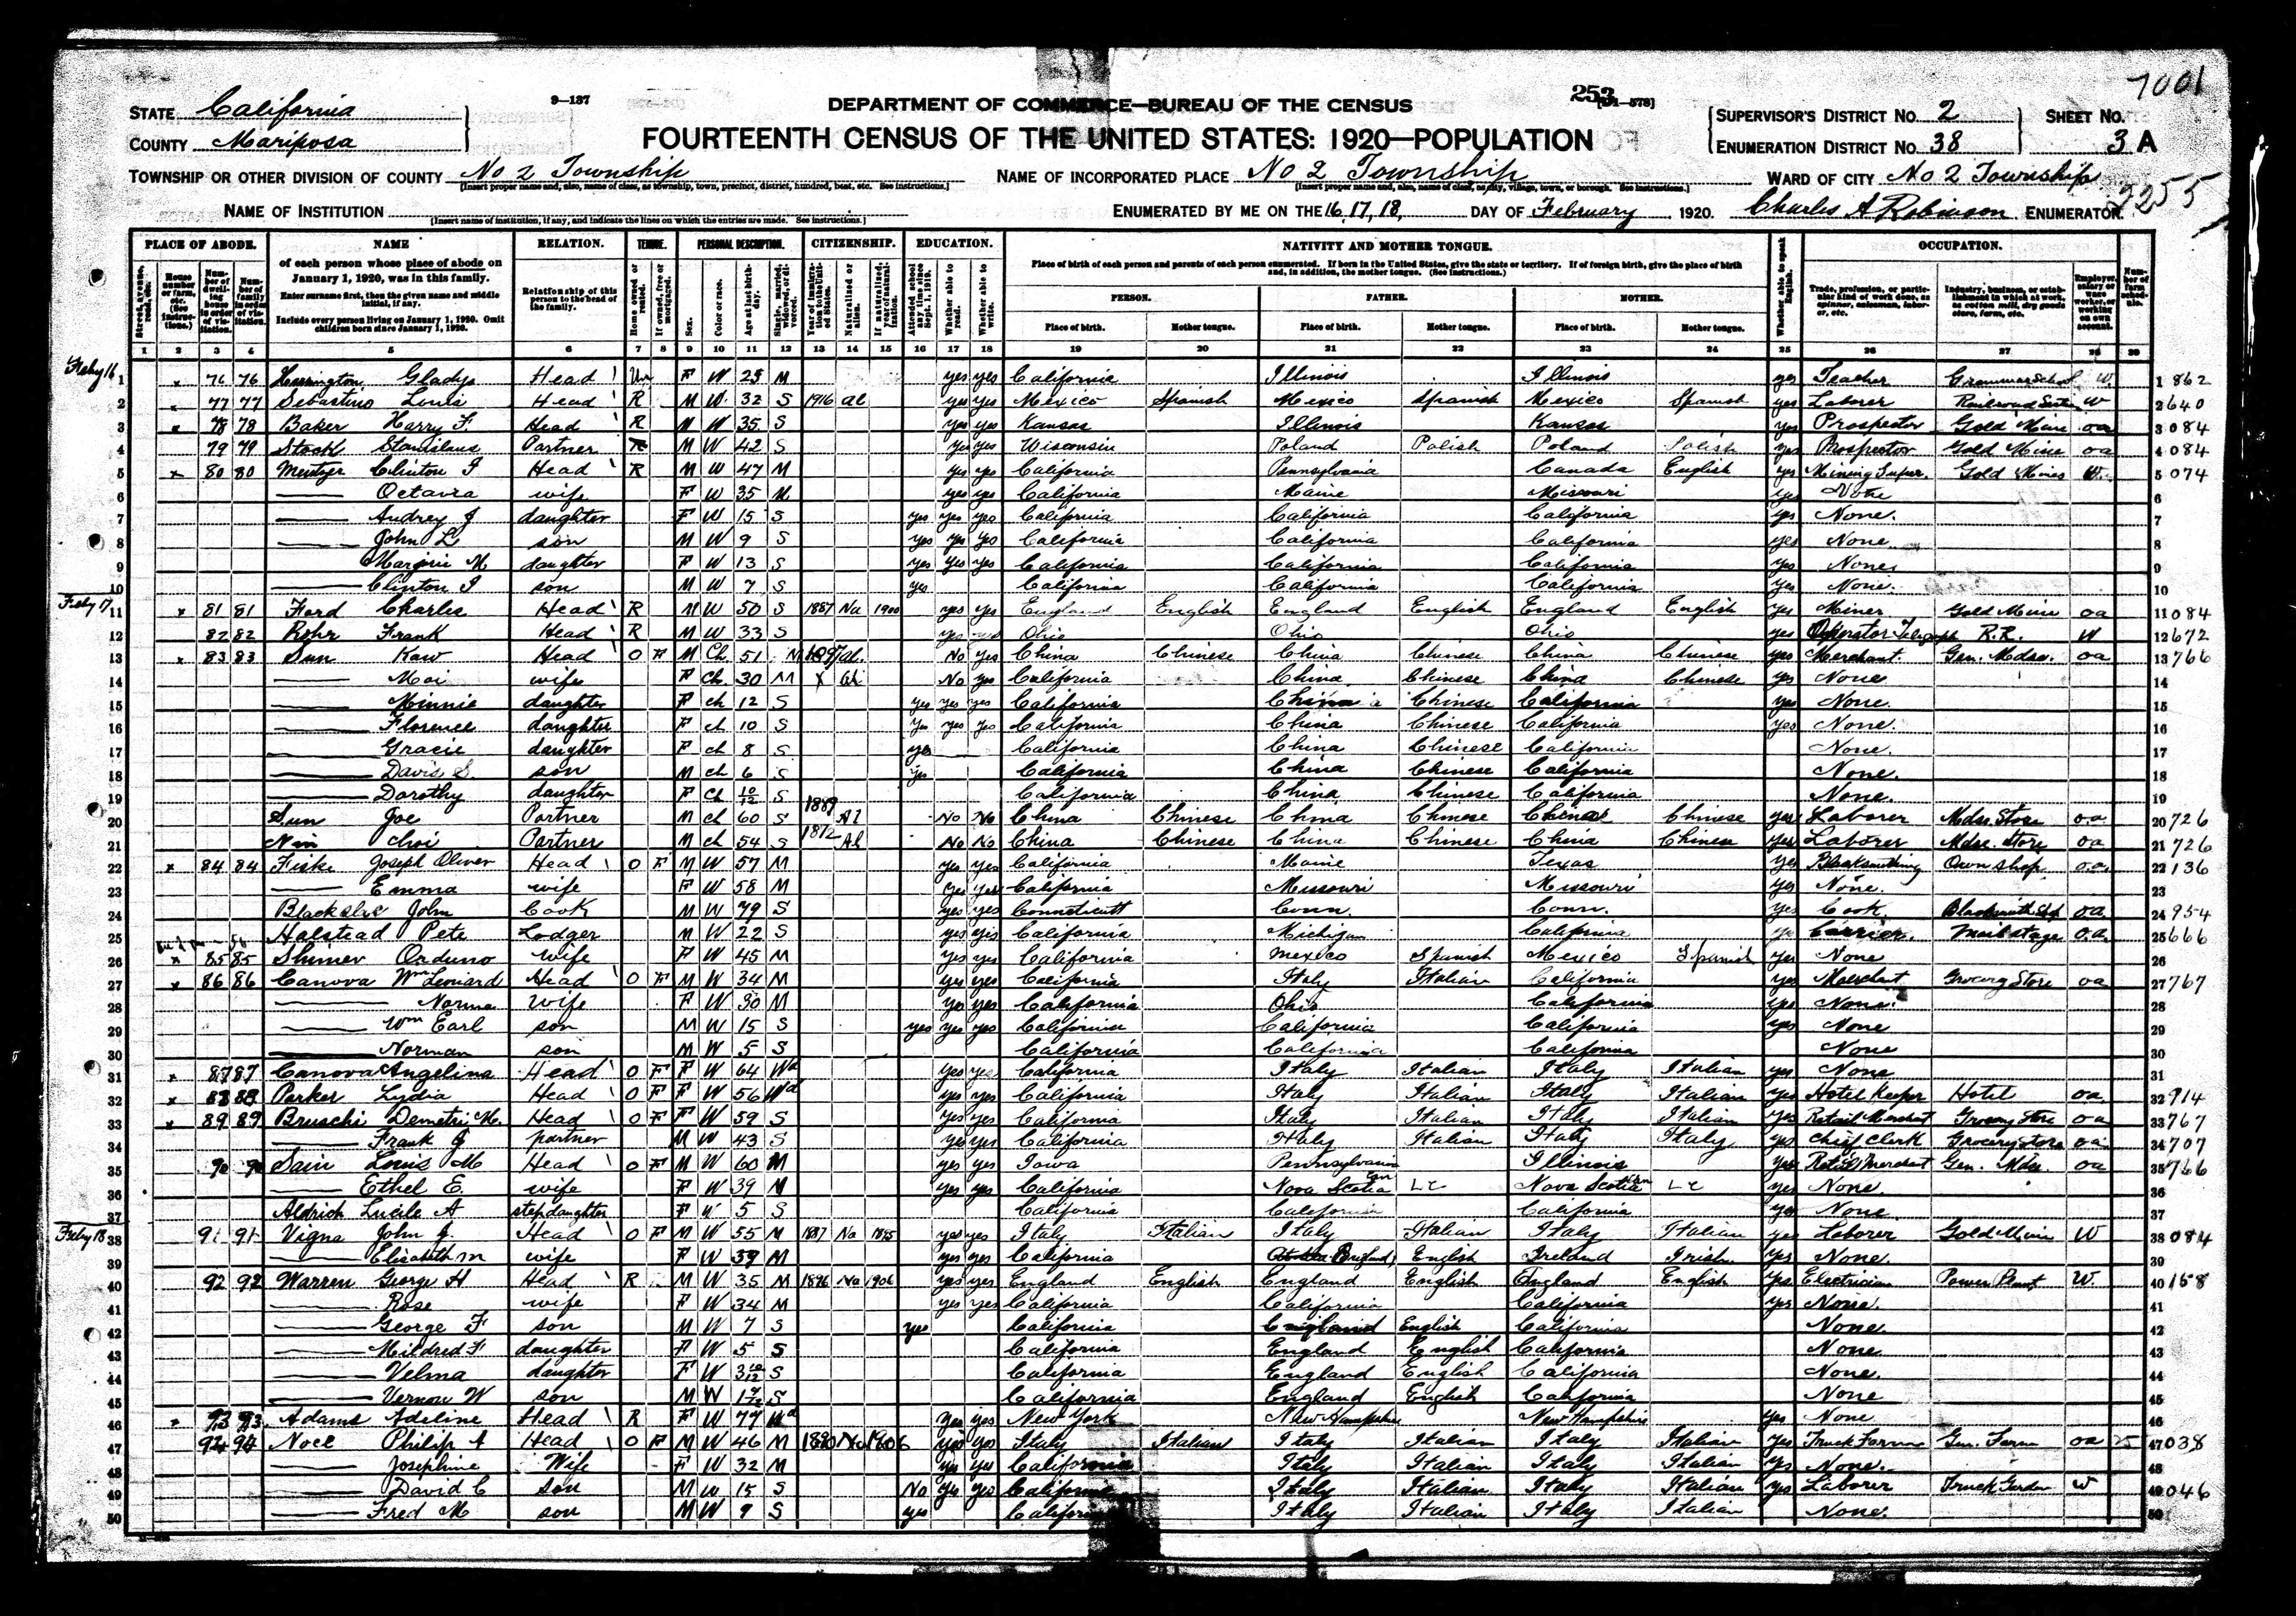 7001
9—137
253
[D1—578]
STATE California
DEPARTMENT OF COMMERCE—BUREAU OF THE CENSUS
SUPERVISOR'S DISTRICT NO. 2 SHEET NO.
COUNTY Mariposa
FOURTEENTH CENSUS OF THE UNITED STATES: 1920—POPULATION
ENUMERATION DISTRICT NO. 38 3 A
TOWNSHIP OR OTHER DIVISION OF COUNTY No 2 Township NAME OF INCORPORATED PLACE No 2 Township WARD OF CITY No 2 Township
[Insert proper name and, also, name of class, as township, town, precinct, district, hundred, beat, etc. See instructions.] [Insert proper name and, also, name of class, as city, village, town, or borough. See instructions.]
2255
NAME OF INSTITUTION ENUMERATED BY ME ON THE 16, 17, 18, DAY OF February, 1920. Charles A Robinson ENUMERATOR.
[Insert name of institution, if any, and indicate the lines on which the entries are made. See instructions.]
PLACE OF ABODE. NAME RELATION. TENURE. PERSONAL DESCRIPTION. CITIZENSHIP. EDUCATION. NATIVITY AND MOTHER TONGUE. OCCUPATION.
of each person whose place of abode on January 1, 1920, was in this family.
Enter surname first, then the given name and middle initial, if any.
Include every person living on January 1, 1920. Omit children born since January 1, 1920.
Relationship of this person to the head of the family.
Place of birth of each person and parents of each person enumerated. If born in the United States, give the state or territory. If of foreign birth, give the place of birth and, in addition, the mother tongue. (See instructions.)
PERSON. FATHER. MOTHER.
Place of birth. Mother tongue. Place of birth. Mother tongue. Place of birth. Mother tongue.
1 2 3 4 5 6 7 8 9 10 11 12 13 14 15 16 17 18 19 20 21 22 23 24 25 26 27 28 29
Feby 16 1 x 76 76 Harrington Gladys Head F W 25 M yes yes California Illinois Illinois yes Teacher Grammar School W 1 862
2 x 77 77 Sebastino Louis Head R M W 32 S 1916 Al yes yes Mexico Spanish Mexico Spanish Mexico Spanish yes Laborer Railroad Section W 2 640
3 x 78 78 Baker Harry F. Head R M W 35 S yes yes Kansas Illinois Kansas yes Prospector Gold Mine oa 3 084
4 79 79 Stock Stanislaus Partner R M W 42 S yes yes Wisconsin Poland Polish Poland Polish yes Prospector Gold Mine oa 4 084
5 x 80 80 Mentzer Clinton I Head R M W 47 M yes yes California Pennsylvania Canada English yes Mining Super. Gold Mines W. 5 074
6 Octavia wife F W 35 M yes yes California Maine Missouri yes None 6
7 Audrey J daughter F W 15 S yes yes yes California California California yes None. 7
8 John L son M W 9 S yes yes yes California California California yes None. 8
9 Marjorie M daughter F W 13 S yes yes yes California California California yes None 9
10 Clinton I son M W 7 S yes California California California yes None. 10
Feby 17 11 x 81 81 Ford Charles Head R M W 50 S 1887 Na 1900 yes yes England English England English England English yes Miner Gold Mine oa 11 084
12 82 82 Rohr Frank Head R M W 33 S yes yes Ohio Ohio Ohio yes Operator Telegraph R.R. W 12 672
13 x 83 83 Sun Kaw Head O F M Ch 51 M 1897 Al. No yes China Chinese China Chinese China Chinese yes Merchant. Gen. Mdse. oa 13 766
14 Moi wife F Ch 30 M X Al No yes California China Chinese China Chinese yes None 14
15 Minnie daughter F ch 12 S yes yes yes California China Chinese California yes None. 15
16 Florence daughter F ch 10 S yes yes yes California China Chinese California yes None. 16
17 Gracie daughter F ch 8 S yes California China Chinese California None. 17
18 Davis S. son M ch 6 S yes California China Chinese California None. 18
19 Dorothy daughter F Ch 10/12 S California China Chinese California None. 19
20 Sun Joe Partner M ch 60 S 1889 Al No No China Chinese China Chinese China Chinese yes Laborer Mdse. Store oa 20 726
21 Nin Choi Partner M ch 54 S 1872 Al No No China Chinese China Chinese China Chinese yes Laborer Mdse. Store oa 21 726
22 x 84 84 Fiske Joseph Oliver Head O F M W 57 M yes yes California Maine Texas yes Blacksmithing Own shop oa. 22 136
23 Emma wife F W 58 M yes yes California Missouri Missouri yes None. 23
24 Blackslee John Cook M W 79 S yes yes Connecticutt Conn. Conn. yes Cook Blacksmith Shp oa 24 954
25 Halstead Pete Lodger M W 22 S yes yes California Michigan California ye Carrier. Mail Stage O.a. 25 666
26 x 85 85 Shimer Orduno wife F W 45 M yes yes California Mexico Spanish Mexico Spanish yes None 26
27 x 86 86 Canova Wm Leniard Head O F M W 34 M yes yes California Italy Italian California yes Merchant Grocery Store oa 27 767
28 Norma wife F W 30 M yes yes California Ohio California yes None. 28
29 Wm Earl son M W 15 S yes yes yes California California California yes None 29
30 Norman son M W 5 S California California California None 30
31 x 87 87 Canova Angelina Head O F F W 64 Wd yes yes California Italy Italian Italy Italian yes None 31
32 x 88 88 Parker Lydia Head O F F W 56 Wd yes yes California Italy Italian Italy Italian yes Hotel Keeper Hotel oa 32 914
33 x 89 89 Bruschi Demetri M. Head O F F W 59 S yes yes California Italy Italian Italy Italian yes Retail Merchant Grocery Store oa 33 767
34 Frank J partner M W 43 S yes yes California Italy Italian Italy Italy yes Chief Clerk Grocery Store oa 34 707
35 90 90 Sain Louis M Head O F M W 60 M yes yes Iowa Pennsylvania Illinois yes Retail Merchant Gen. Mdse. oa 35 766
36 Ethel E. wife F W 39 M yes yes California Nova Scotia Can Nova Scotia Can yes None. 36
37 Aldrich Lucile A stepdaughter F W 5 S California California California yes None 37
Feby 18 38 91 91 Vigna John J. Head O F M W 55 M 1887 Na 1895 yes yes Italy Italian Italy Italian Italy Italian yes Laborer Gold Mine W 38 084
39 Elisabeth M wife F W 39 M yes yes California England English Ireland Irish yes None. 39
40 92 92 Warren George H Head R M W 35 M 1896 Na 1906 yes yes England English England English England English yes Electrician Power Plant W. 40 158
41 Rose wife F W 34 M yes yes California California California yes None. 41
42 George F son M W 7 S yes California England English California None. 42
43 Mildred F daughter F W 5 S California England English California None 43
44 Velma daughter F W 3 10/12 S California England English California None. 44
45 Vernon W son M W S California England English California None 45
46 x 93 93 Adams Adeline Head R F W 77 Wd yes yes New York New Hampshire New Hampshire yes None 46
47 94 94 Noce Philip A Head O F M W 46 M 1890 Na 1906 yes yes Italy Italian Italy Italian Italy Italian yes Truck Farm Gen. Farm oa 25 47 038
48 Josephine Wife F W 32 M yes yes California Italy Italian Italy Italian yes None. 48
49 David C son M W 15 S No yes yes California Italy Italian Italy Italian yes Laborer Truck Garden W 49 046
50 Fred M son M W 9 S yes California Italy Italian Italy Italian None. 50